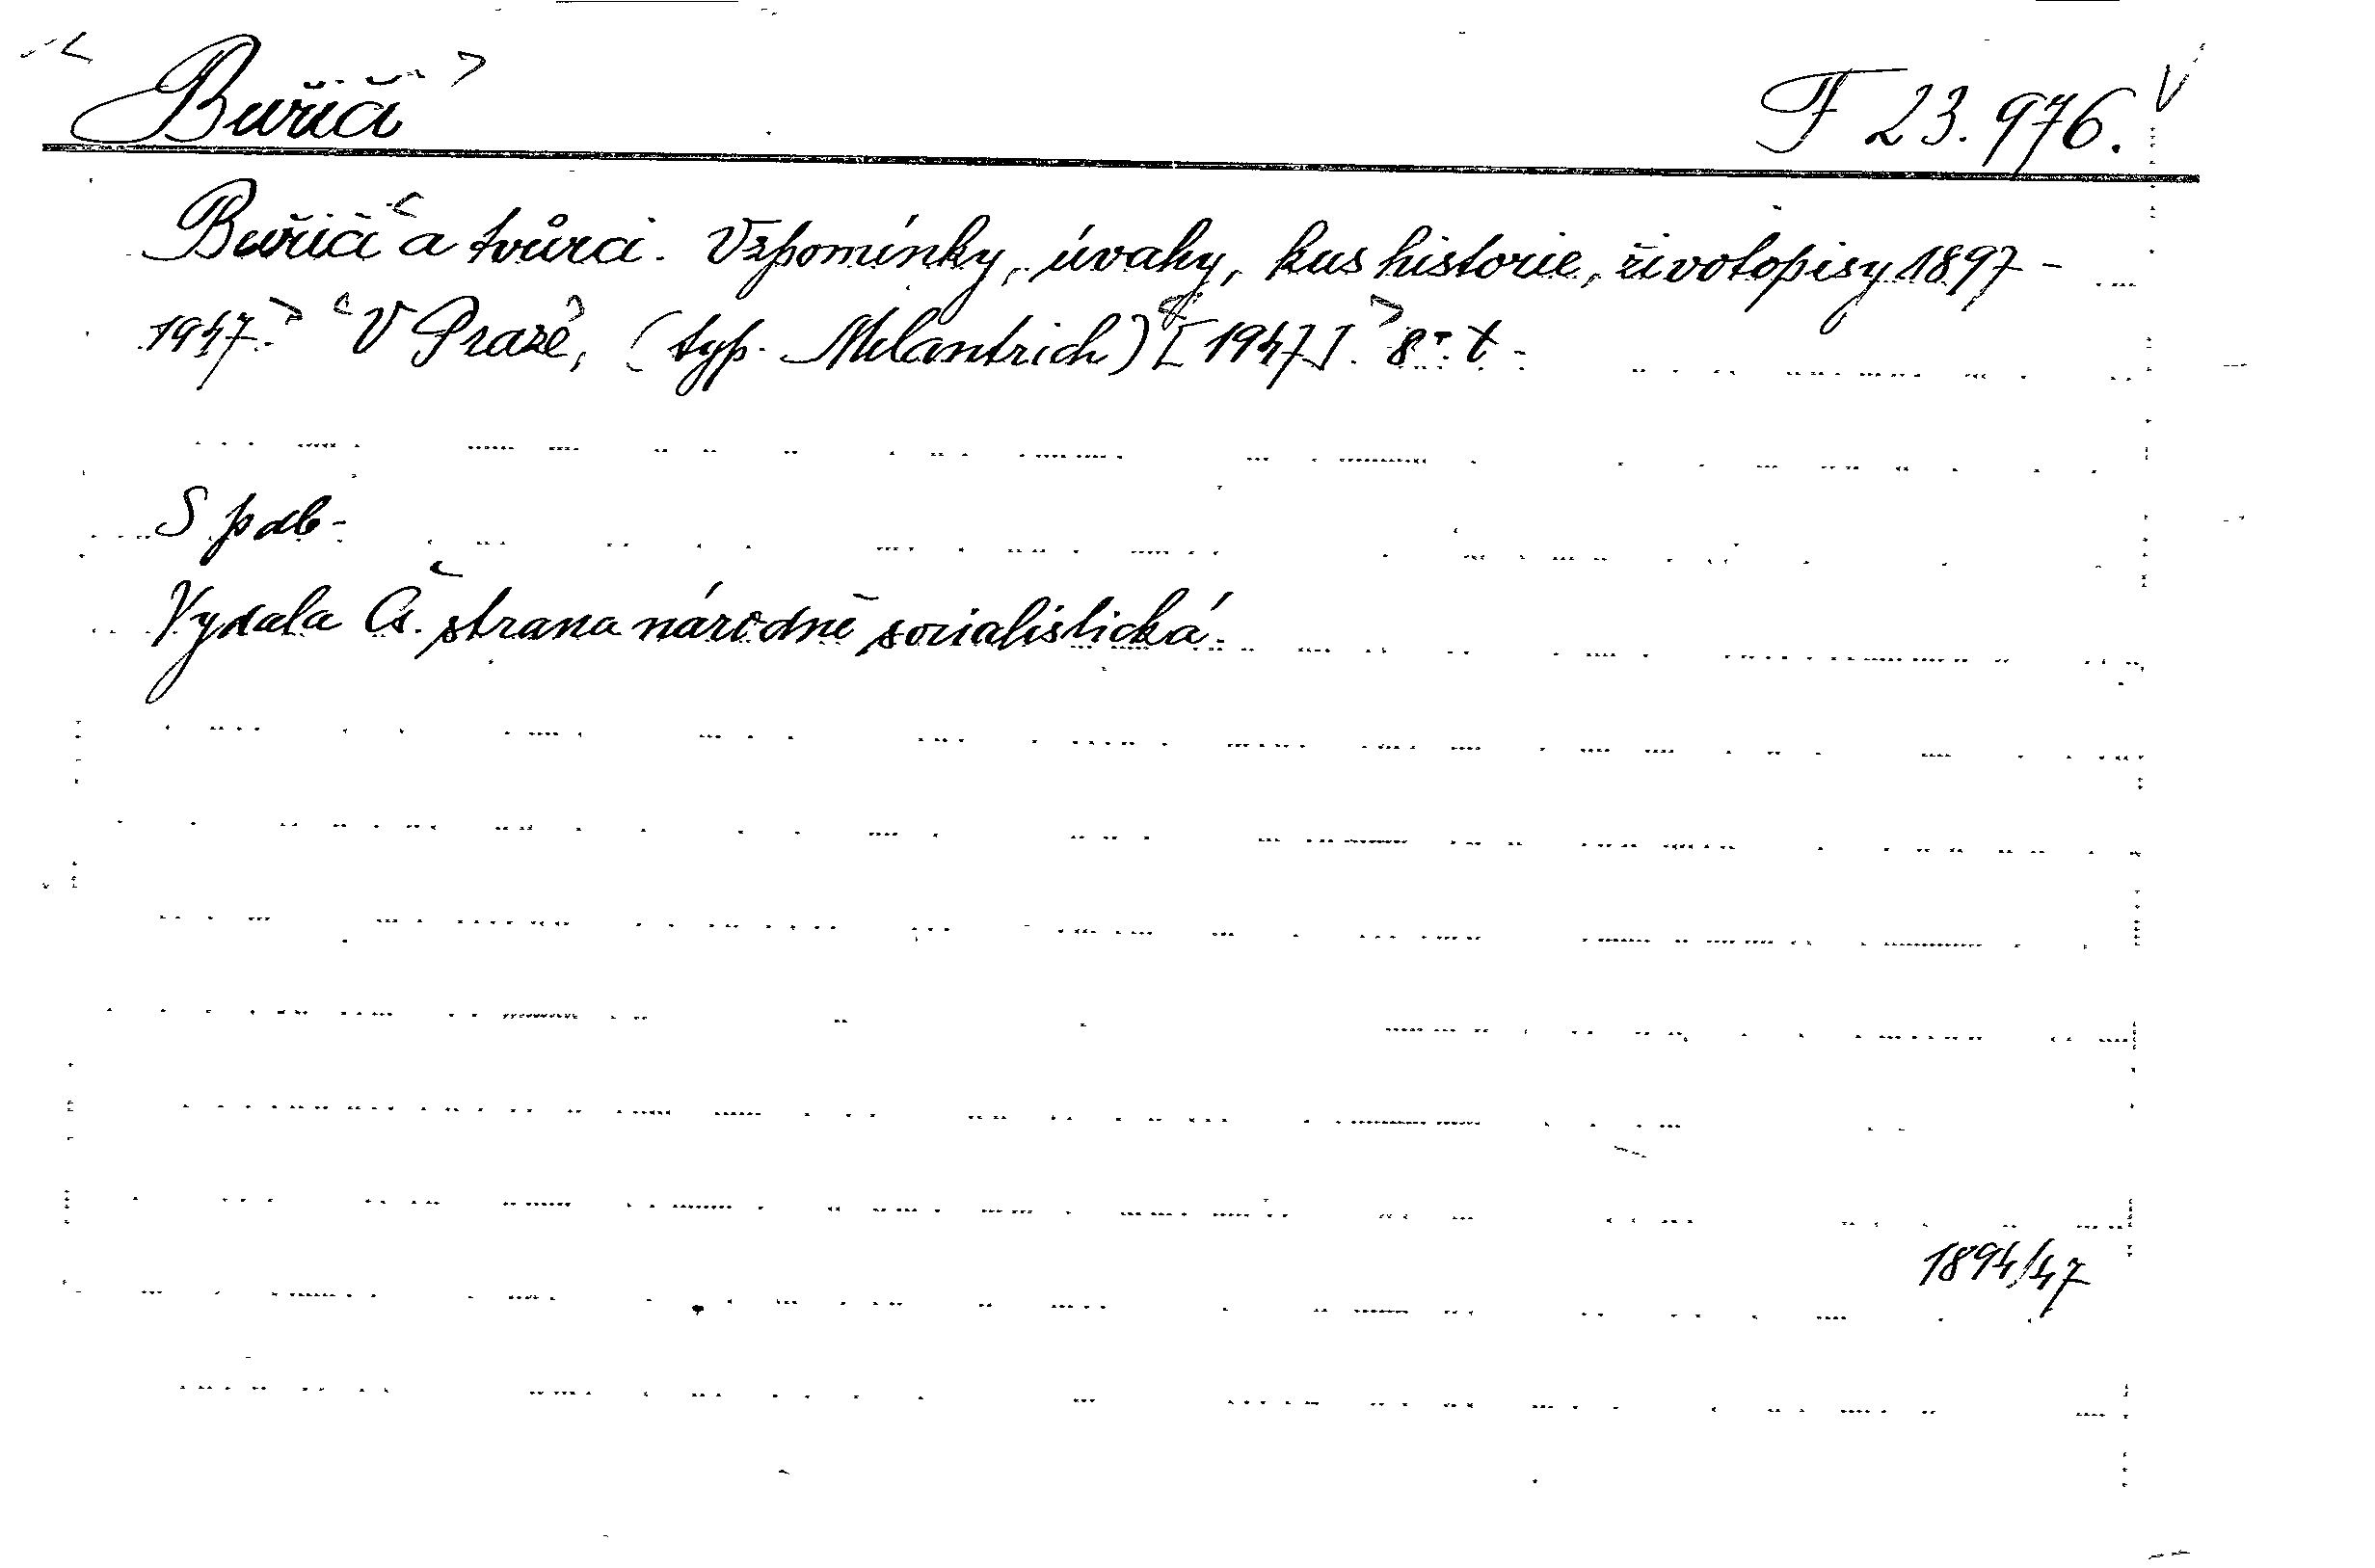 Buřiči F 23.976.
Buřiči a tvůrci. Vzpomínky, úvahy, kus historie, životopisy 1897-
1947. V Praze, (typ. Melantrich) [1947]. 8°. t.
S pdb.
Vydala Čs. strana národně socialistická.
1894/47